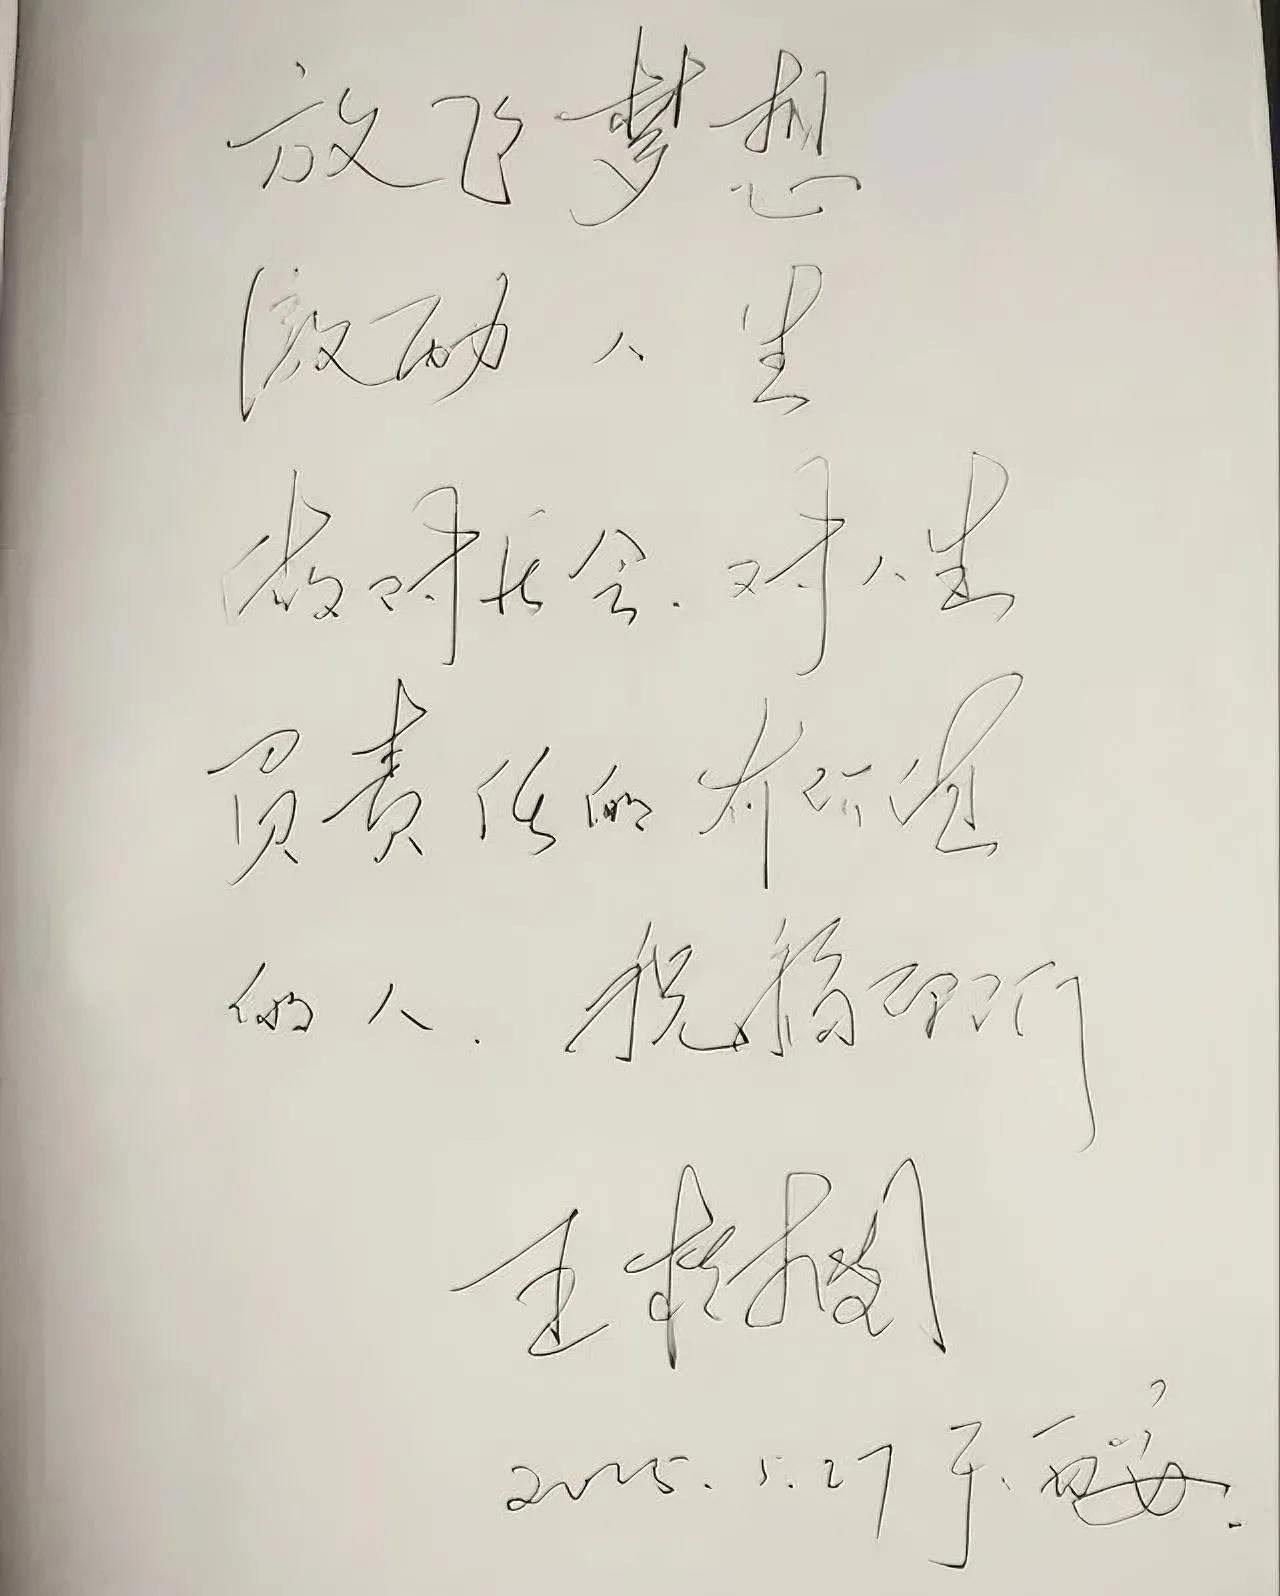 放飞梦想
激励人生
做对社会.对人生
负责任的有
的人. 祝
王
2025.5.27于.西安.